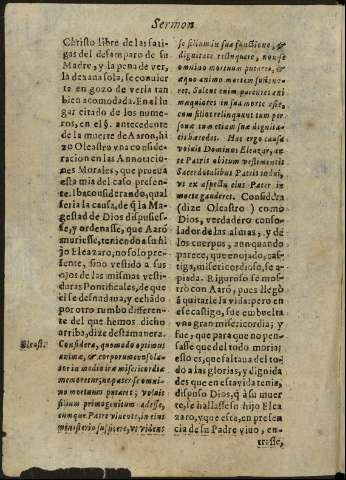 Sermon
Christo libre de las fati-
gas del desamparo de su
Madre, y la pena de ver
la dexana sola, se conuier
te en gozo de verla tan
bien acomodada. En el lu
gar citado de los nume-
ros, en el §. antecedente
de la muerte de Aaron, hi
zo Oleastro vna conside-
racion en las Annotacio-
nes Morales, que prueua
esta mia del caso presen-
te. Iba considerando, qual
seria la causa, de q̃ la Ma-
gestad de Dios dispusies-
se, y ordenasse, que Aarõ
muriesse, teniendo a su hi
jo Eleazaro, no solo pre-
sente, sino vestido a sus
ojos de las mismas vesti-
duras Pontificales, de que
el se desnudaua, y echãdo
por otro rumbo differen-
te del que hemos dicho
arriba, dize desta manera.
Oleast.
Considera, quomodo optimus
animæ, & corporum consola-
tor in medio iræ misericordiæ
memoretur, ne pater se omni-
no mortuum putaret; voluit
filium primogenitum adesse,
eumque Patre viuente, in eius
ministerio suffi­cere, vt videns
se filium in sua functione, &
dignitate relinquere, non se
omnino mortuum putaret, &
æquo animo mortem sustine-
ret. Solent enim parentes ani
maquiores in sua morte esse,
cum filios relinquunt tum per-
sonæ tum etiam suæ dignita-
tis hæredes. Hac ergo causa
voluit Dominus Eleazar, an-
te Patris obitum vestimentis
Sacerdotalibus Patris indui,
vt ex aspectu eius Pater in
morte gauderet. Considera
(dize Oleastro) como
Dios, verdadero conso-
lador de las almas, y de
los cuerpos, aun quando
parece, que enojado, cas-
tiga, misericordioso, se a-
piada. Riguroso se mos-
trò con Aarõ, pues llegò
à quitarle la vida: pero en
esse castigo, fue embuelta
vna gran misericordia; y
fue, que para que no pen-
sasse que del todo moria;
ello es, que faltaua del to-
do a las glorias, y dignida
des que en esta vida tenia,
dispuso Dios, q̃ à su muer
te, se hallasse su hijo Elea-
zaro, y que este, en presen
cia de su Padre viuo, en-
trasse,